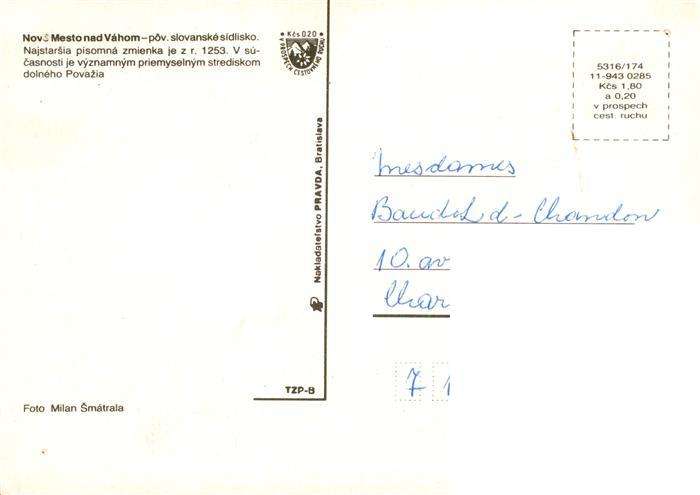 Nové Mesto nad Váhom – pôv. slovanské sídlisko.
Najstaršia písomná zmienka je z r. 1253. V sú-
časnosti je významným priemyselným strediskom
dolného Považia
Kčs 0.20
V PROSPECH CESTOVNÉHO RUCHU
5316/174
11-943 0285
Kčs 1,80
a 0,20
v prospech
cest. ruchu
Nakladateľstvo PRAVDA, Bratislava
Mesdames
d- Chandon
10. av
Char
7 1
TZP-B
Foto Milan Šmátrala